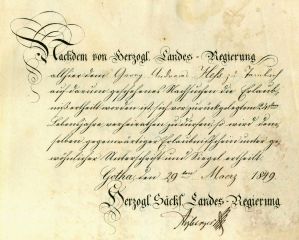 Nachdem von Herzogl. Landes-Regierung
allhier dem Georg Andreas Heß zu Tambach
auf darum geschehenes Nachsuchen die Erlaub-
niß ertheilt worden ist, sich vor zurückgelegtem 24sten
Lebensjahre verheirathen zu dürfen; so wird dem-
selben gegenwärtiger Erlaubnißschein unter ge-
wöhnlicher Unterschrift und Siegel ertheilt.
Gotha, den 29ten Maerz 1849.
Herzogl. Sächs. Landes-Regierung